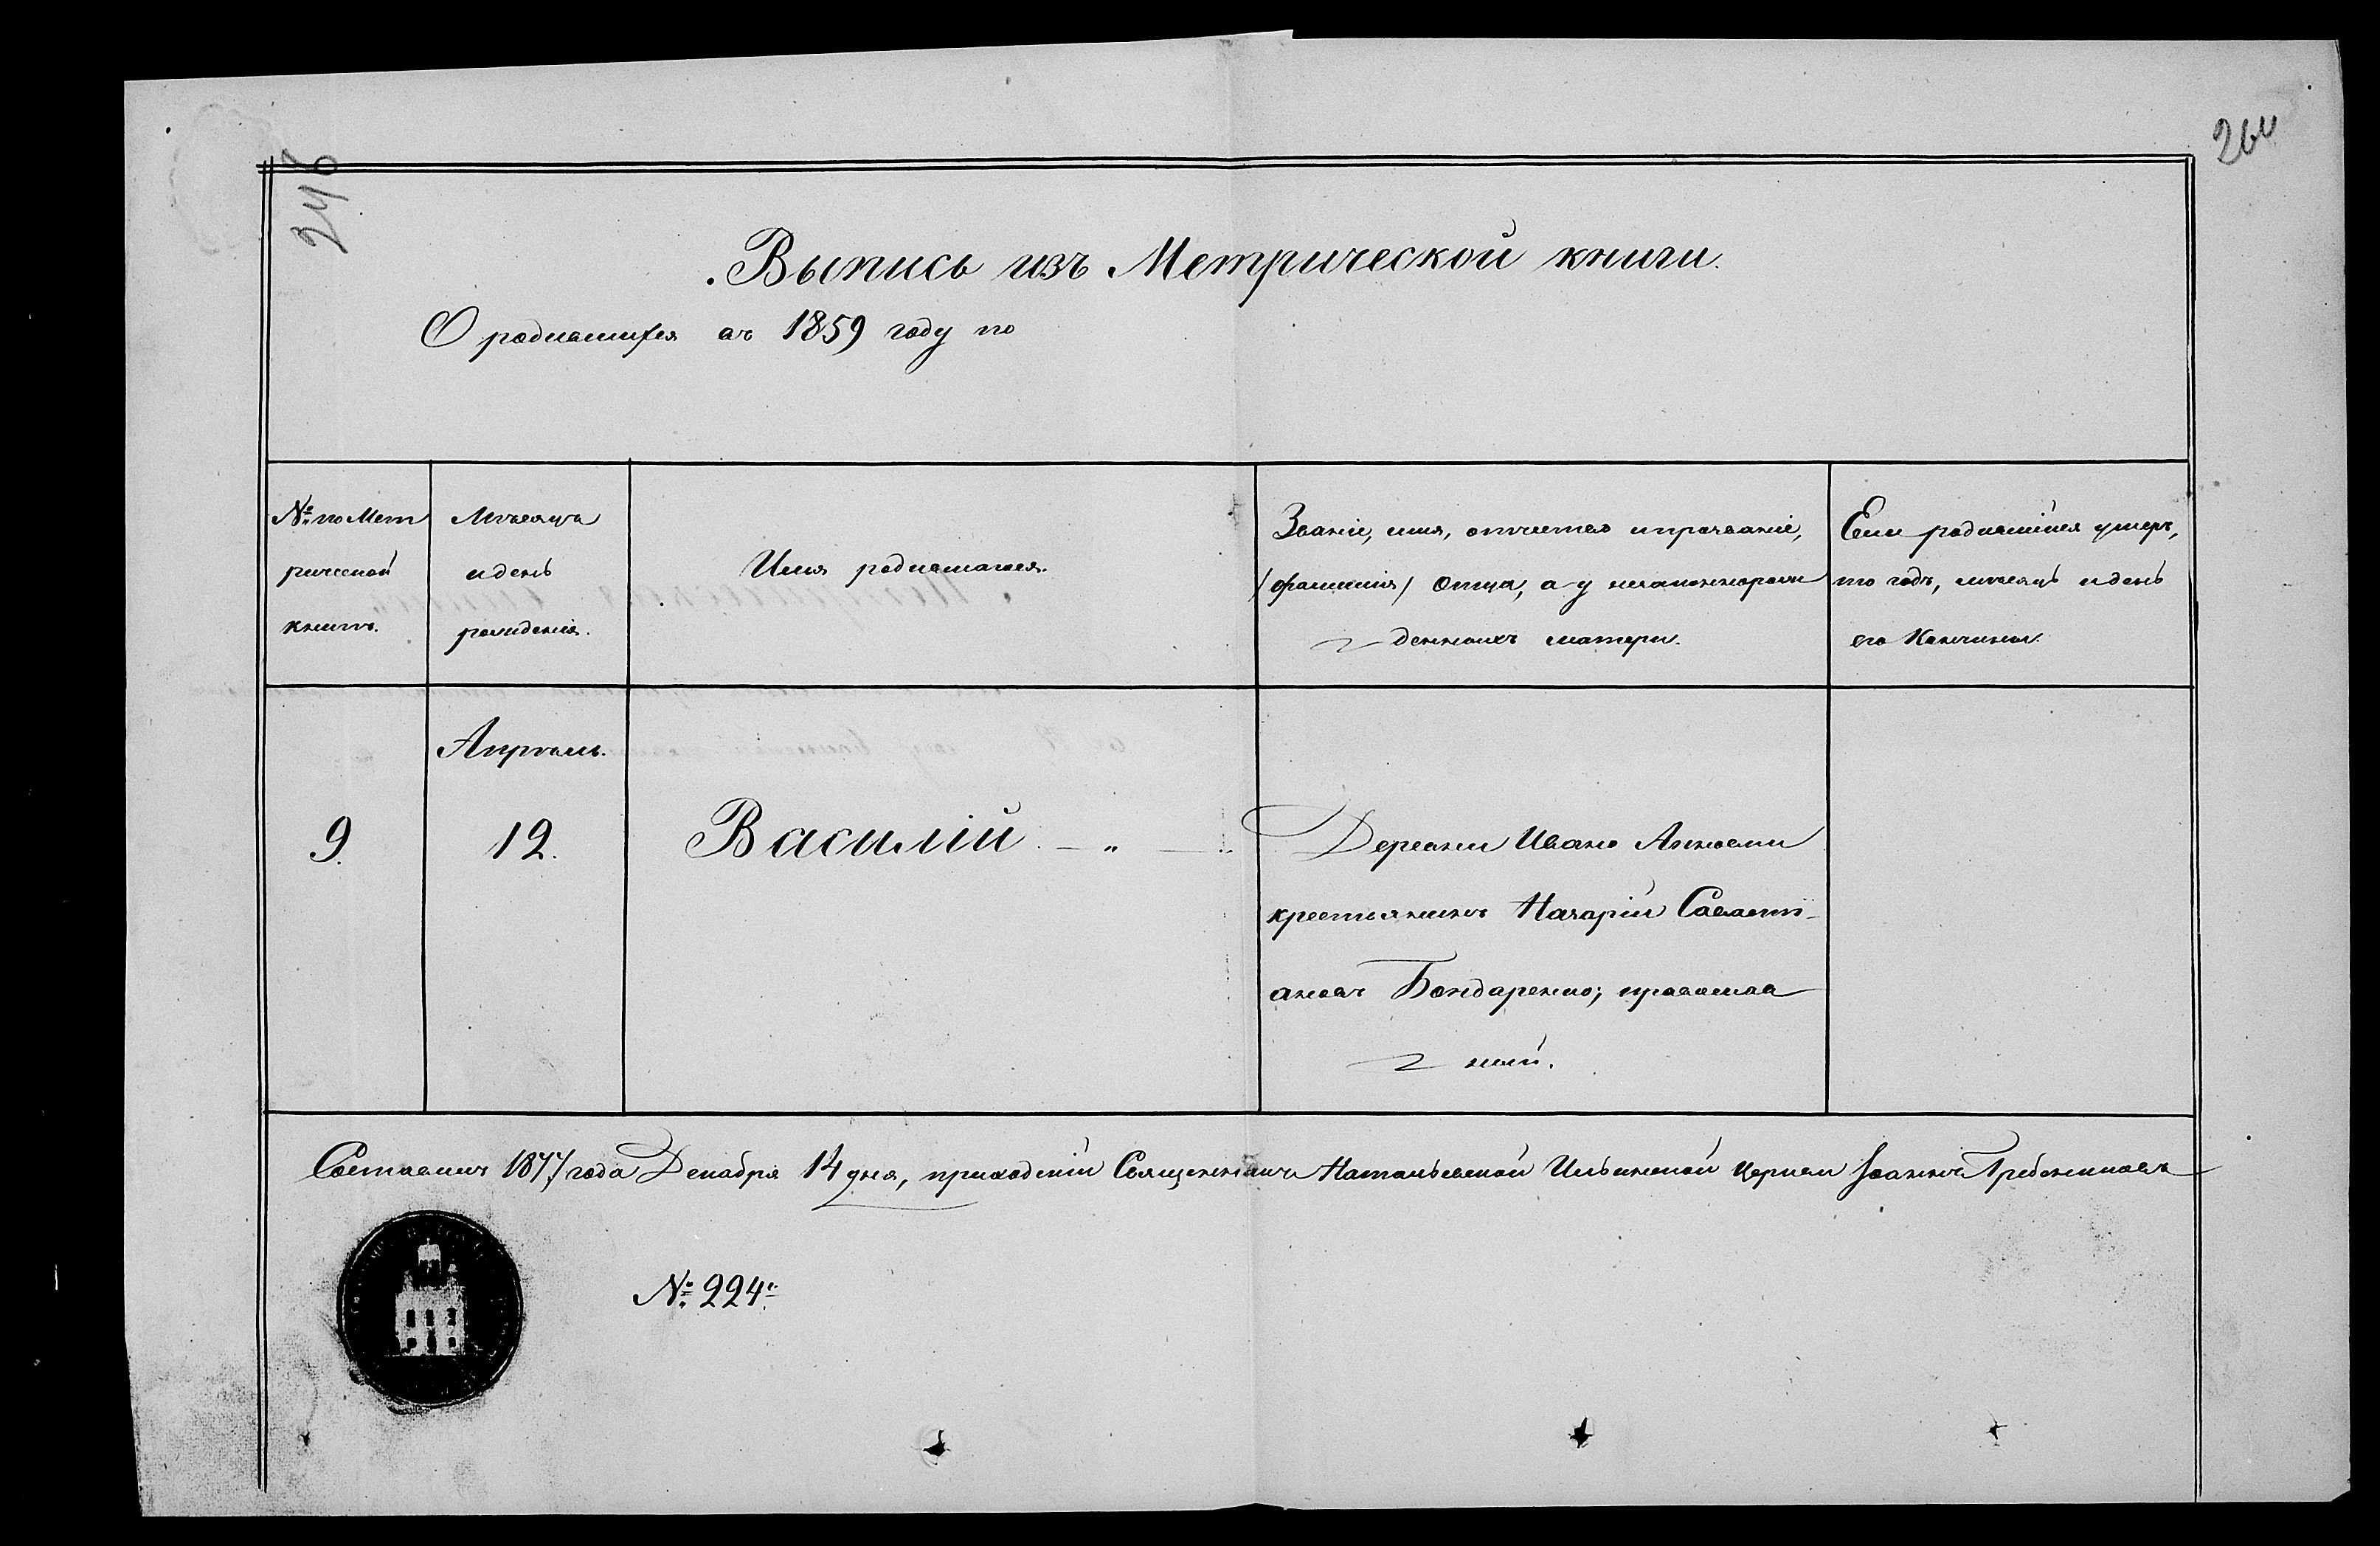 264
246
Выпись изъ Метрической книги.
О родившихся въ 1859 году по
№ по Мет
рической
книгѣ.
Мѣсяцъ
и день
рожденія.
Имя родившагося.
Званіе, имя, отчество и прозваніе,
(фамилія) Отца, а у незаконнорож
денныхъ матери.
Если родившійся умеръ,
то годъ, мѣсяцъ и день
его Кончины.
Апрѣль.
9.
12.
Василій — „ —
Деревни Ивано Анновки
крестьянинъ Назарій Саваті-
ановъ Бондаренко; православ
ный.
Составилъ 1877 года Декабря 14 дня, приходскій Священникъ Натальевской Ильинской церкви Іоаннъ Гребенниковъ
№ 224.